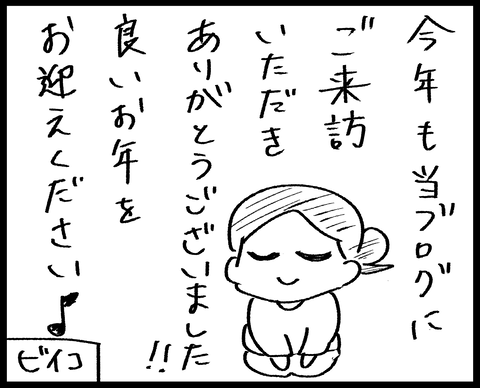 今年も当ブログに
ご来訪
いただき
ありがとうございました!!
良いお年を
お迎えください♪
ビイコ